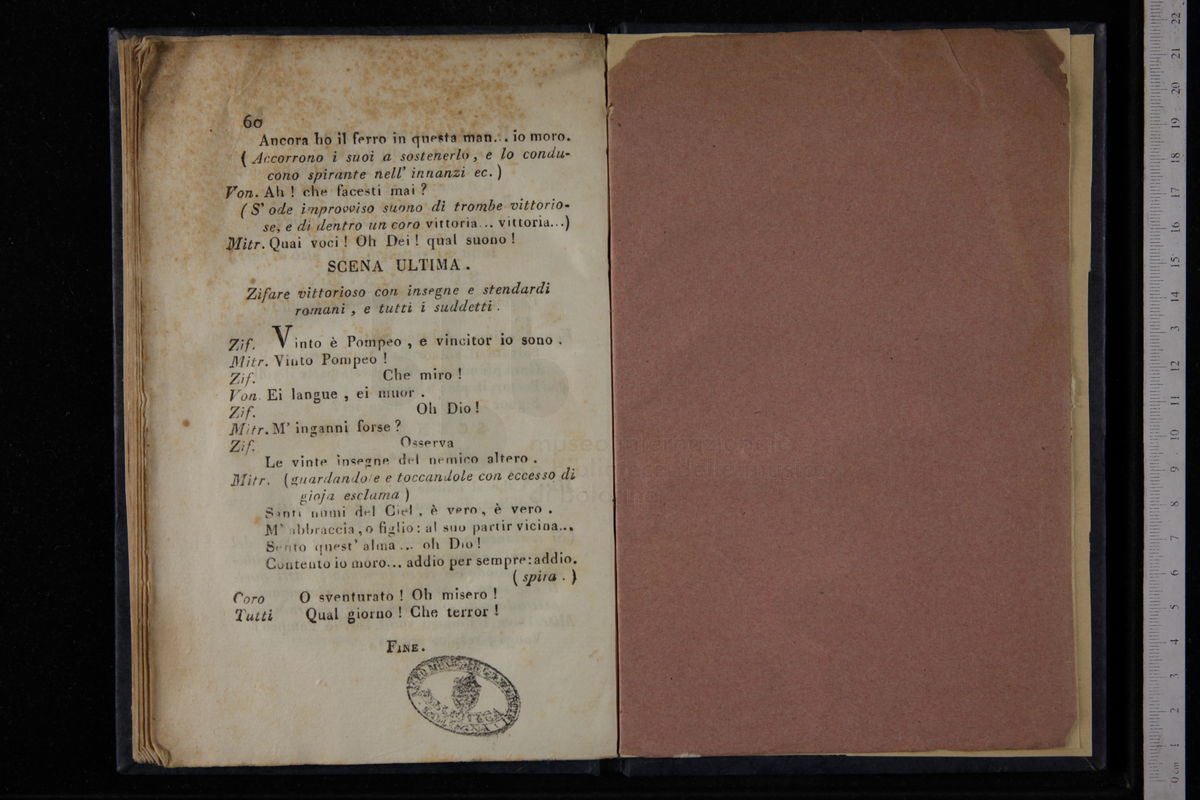 60
Ancora ho il ferro in questa man... io moro.
( Accorrono i suoi a sostenerlo, e lo condu-
cono spirante nell' innanzi ec. )
Von. Ah ! che facesti mai ?
( S' ode improvviso suono di trombe vittorio-
se, e di dentro un coro vittoria... vittoria...)
Mitr. Quai voci ! Oh Dei ! qual suono !
SCENA ULTIMA.
Zifare vittorioso con insegne e stendardi
romani, e tutti i suddetti.
Zif. Vinto è Pompeo, e vincitor io sono.
Mitr. Vinto Pompeo !
Zif. Che miro !
Von. Ei langue, ei muor.
Zif. Oh Dio !
Mitr. M' inganni forse ?
Zif. Osserva
Le vinte insegne del nemico altero.
Mitr. (guardandole e toccandole con eccesso di
gioja esclama )
Santi numi del Ciel, è vero, è vero.
M' abbraccia, o figlio: al suo partir vicina...
Sento quest' alma... oh Dio !
Contento io moro... addio per sempre: addio.
( spira. )
Coro O sventurato ! Oh misero !
Tutti Qual giorno ! Che terror !
FINE.
museo internazionale
di bologna
0 cm 1 2 3 4 5 6 7 8 9 10 11 12 13 14 15 16 17 18 19 20 21 22